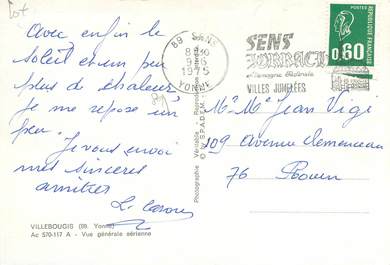 Lot
Avec enfin le
soleil et un peu
plus de chaleur
je me repose un
peu.
Je vous envoi
mes sincères
amitiés
VILLEBOUGIS (89. Yonne)
Ac 570-117 A - Vue générale aérienne
89 SENS
8H30
9-6
1975
YONNE
SENS
LORRACH
Allemagne Fédérale
VILLES JUMELÉES
POSTES
0,60
REPUBLIQUE FRANÇAISE
Mr Me Jean Vige
109 Avenue Clemenceau
76 Rouen
Photographie Véritable
© S.P.A.D.E.M.